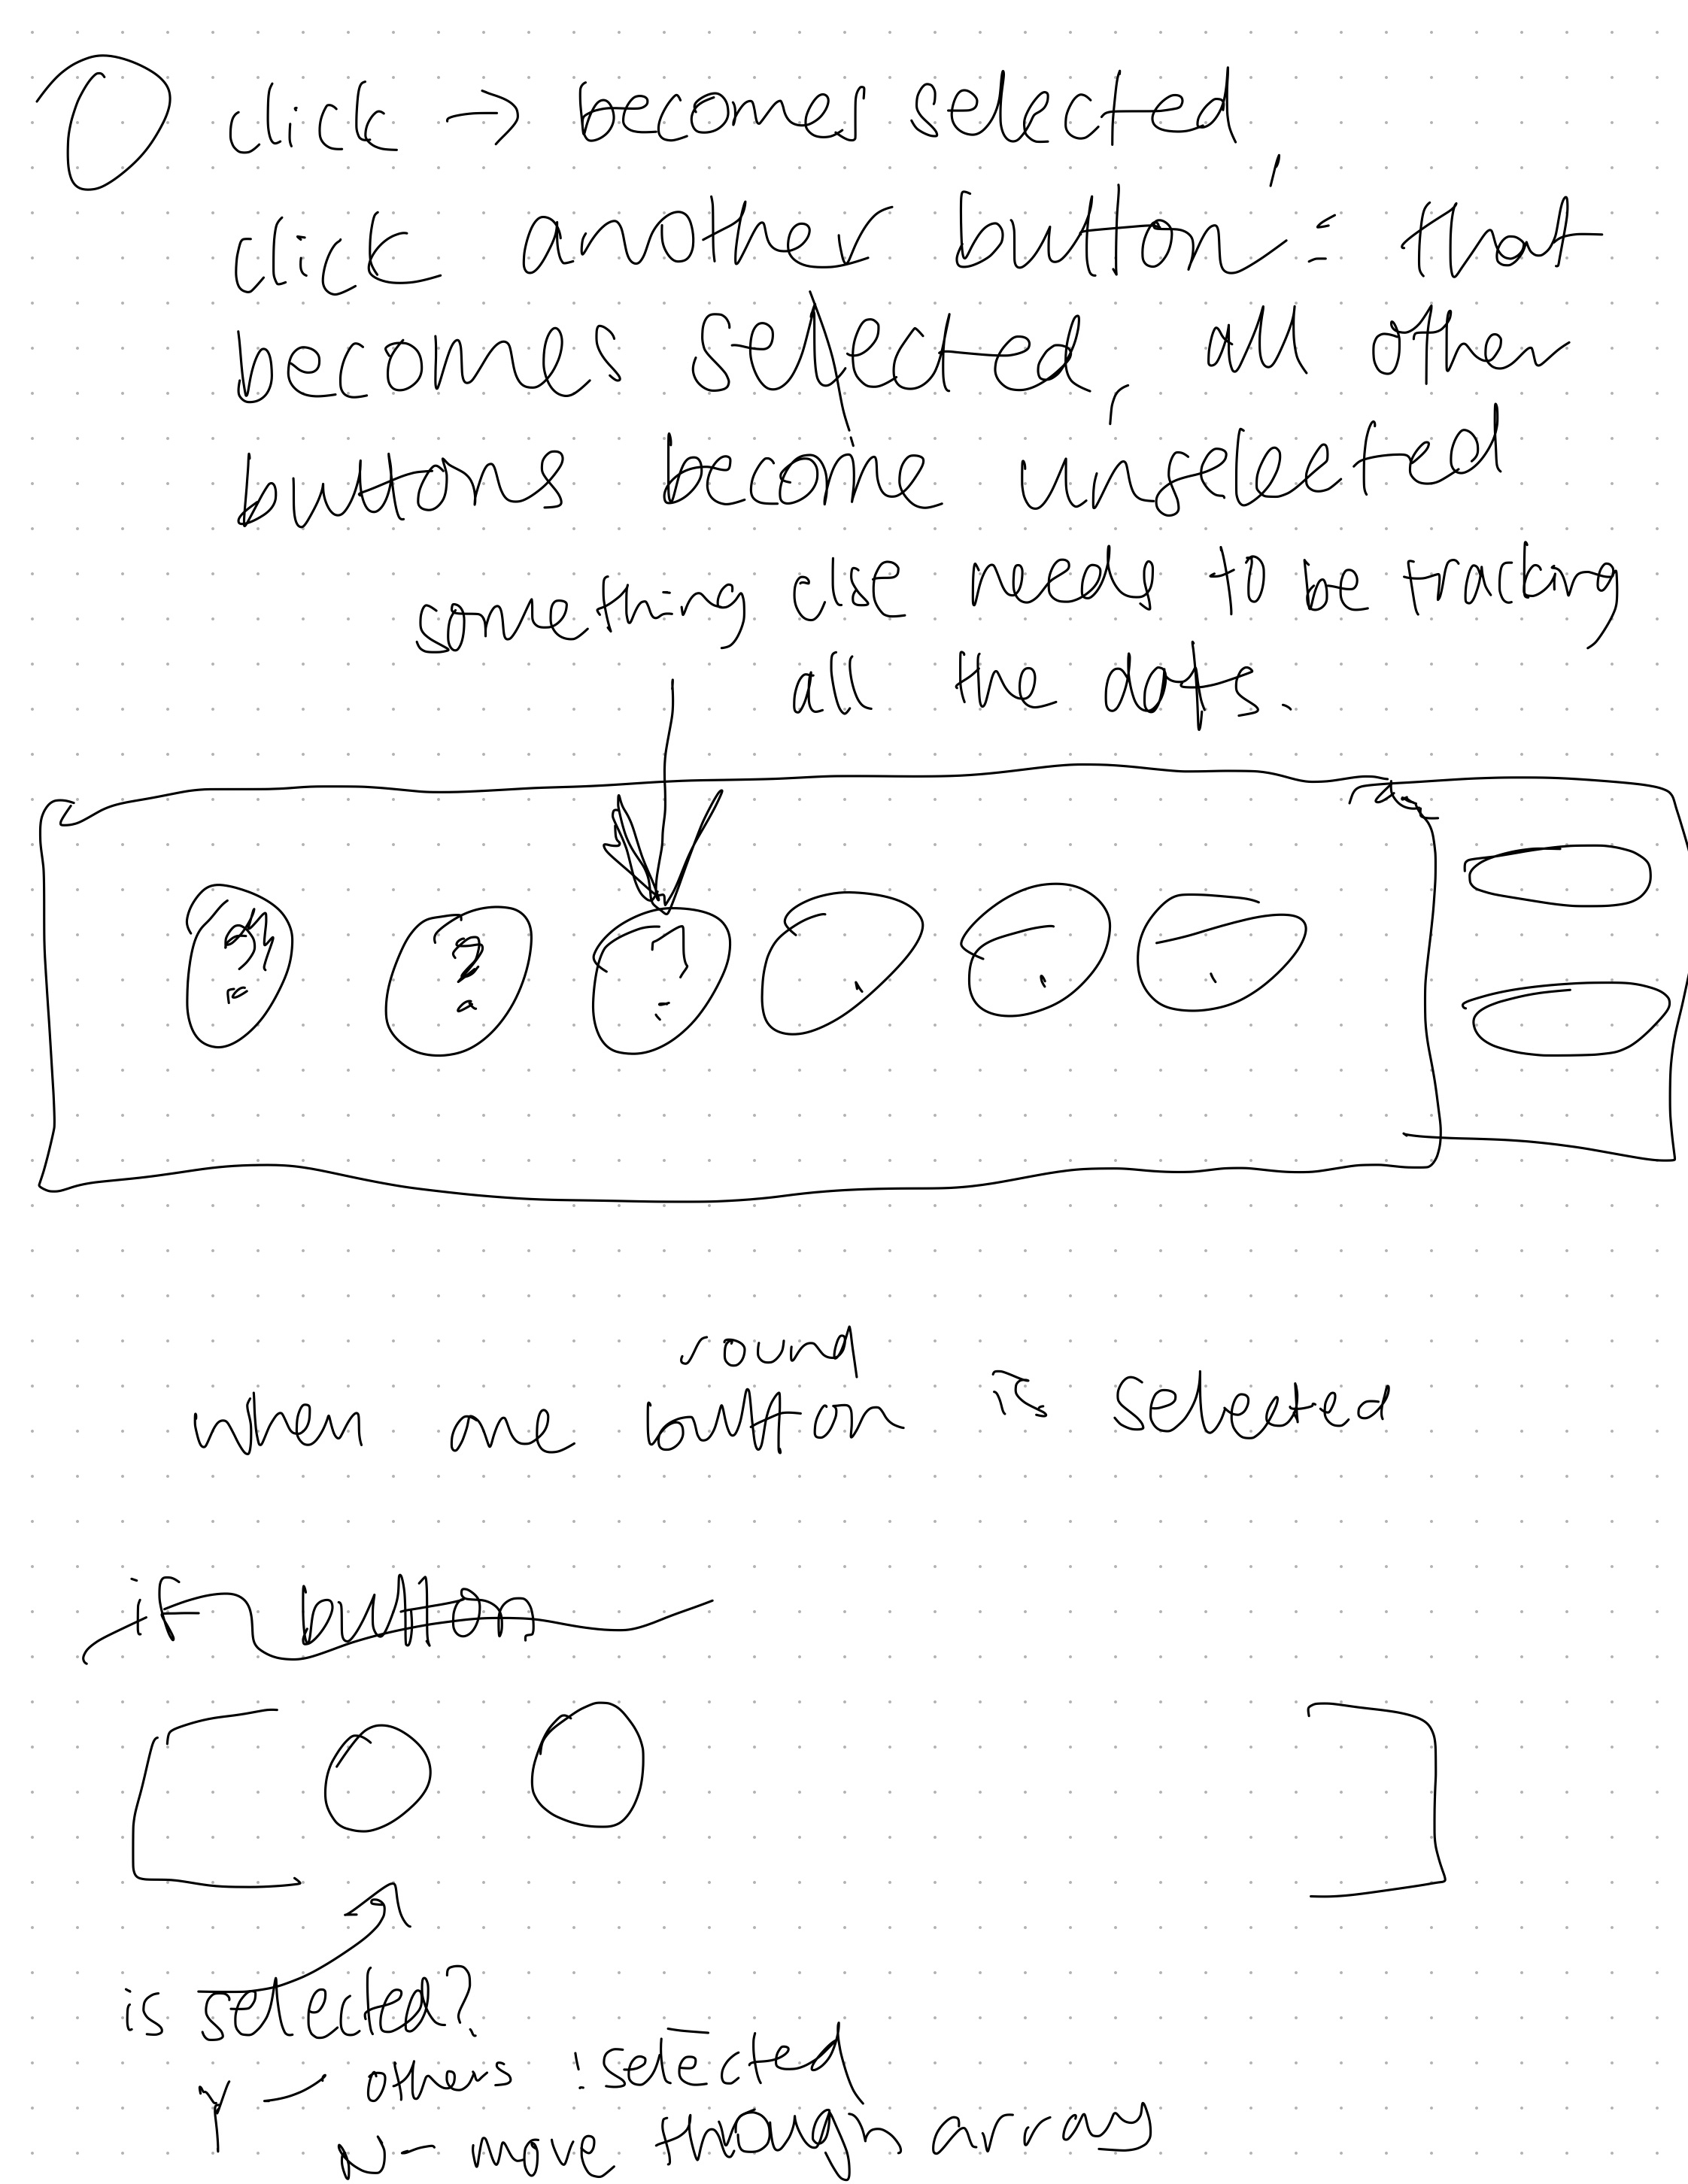 click → becomes selected
click another button : that
becomes selected, all other
buttons become unselected
something else needs to be tracking
all the dots.
round
when one button is selected
if button
is selected?
Y — others !selected
N - move through array